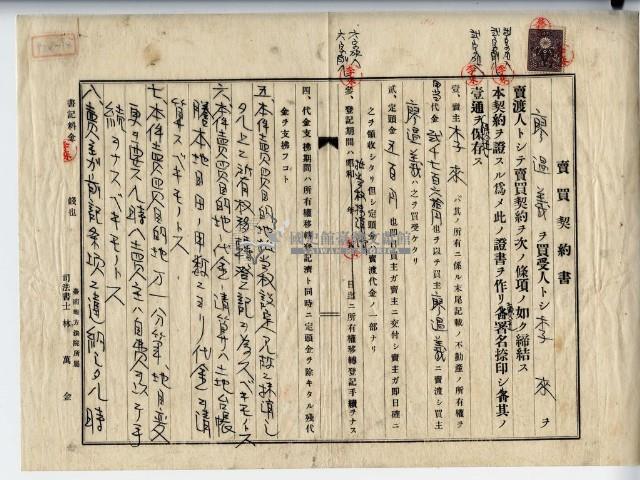 賣買契約書
廖過義 ヲ買受人トシ 李來 ヲ
賣渡人トシテ賣買契約ヲ次ノ條項ノ如ク締結ス
本契約ヲ證スル爲メ此ノ證書ヲ作リ各署名捺印シ各其ノ
壹通ヲ保存ス
壹、賣主 李來 ハ其ノ所有ニ係ル末尾記載ノ不動產ノ所有權ヲ
代金 貳千七百 圓也ヲ以テ買主 廖過義 ニ賣渡シ買主
ハ之ヲ買受ケタリ
貳、定頭金 五百円 也即日買主ガ賣主ニ交付シ賣主ガ即日確ニ
之ヲ領收シタリ但シ定頭金ハ賣渡代金ノ一部ナリ
參、登記期間ハ昭和 年 日迄ニ所有權移轉登記手續ヲナス
四、代金支拂期間ハ所有權移轉登記濟ト同時ニ定頭金ヲ除キタル殘代
金ヲ支拂フコト
五、本件賣買目的地 設定 抹消シ
タル上ニ所有權移轉登記ヲ為スベキモノトス
六、本件賣買目的地ノ代金ノ請算ハ土地台帳
謄本地目田ノ甲數ニヨリ代金ヲ請
算スベキモノトス
七、本件賣買目的地万一分筆、地目変
更ヲ要スル時ハ賣主ハ自費ヲ以テ手
続ヲナスベキモノトス
八、賣主が前記条項ニ違約シタル時
書記料金 錢也
臺南地方法院所屬
司法書士 林萬金
國史館臺灣文獻館